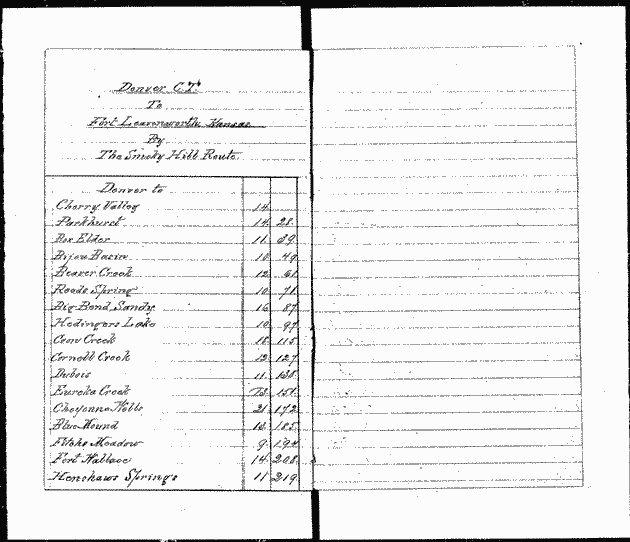 Denver C.T.
To
Fort Leavenworth Kansas
By
The Smoky Hill Route.
Denver to
Cherry Valley 14
Parkhurst 14 28
Box Elder 11 39
Bijou Basin 10 49
Beaver Creek 12 61
Reeds Spring 10 71
Big Bend Sandy 16 87
Hedingers Lake 10 97
Coon Creek 18 115
Cornell Creek 12 127
Dubois 11 138
Eureka Creek 13 151
Cheyenne Wells 21 172
Blue Mound 13 185
Fitche Meadow 9 194
Fort Wallace 14 208
Henshaws Springs 11 219